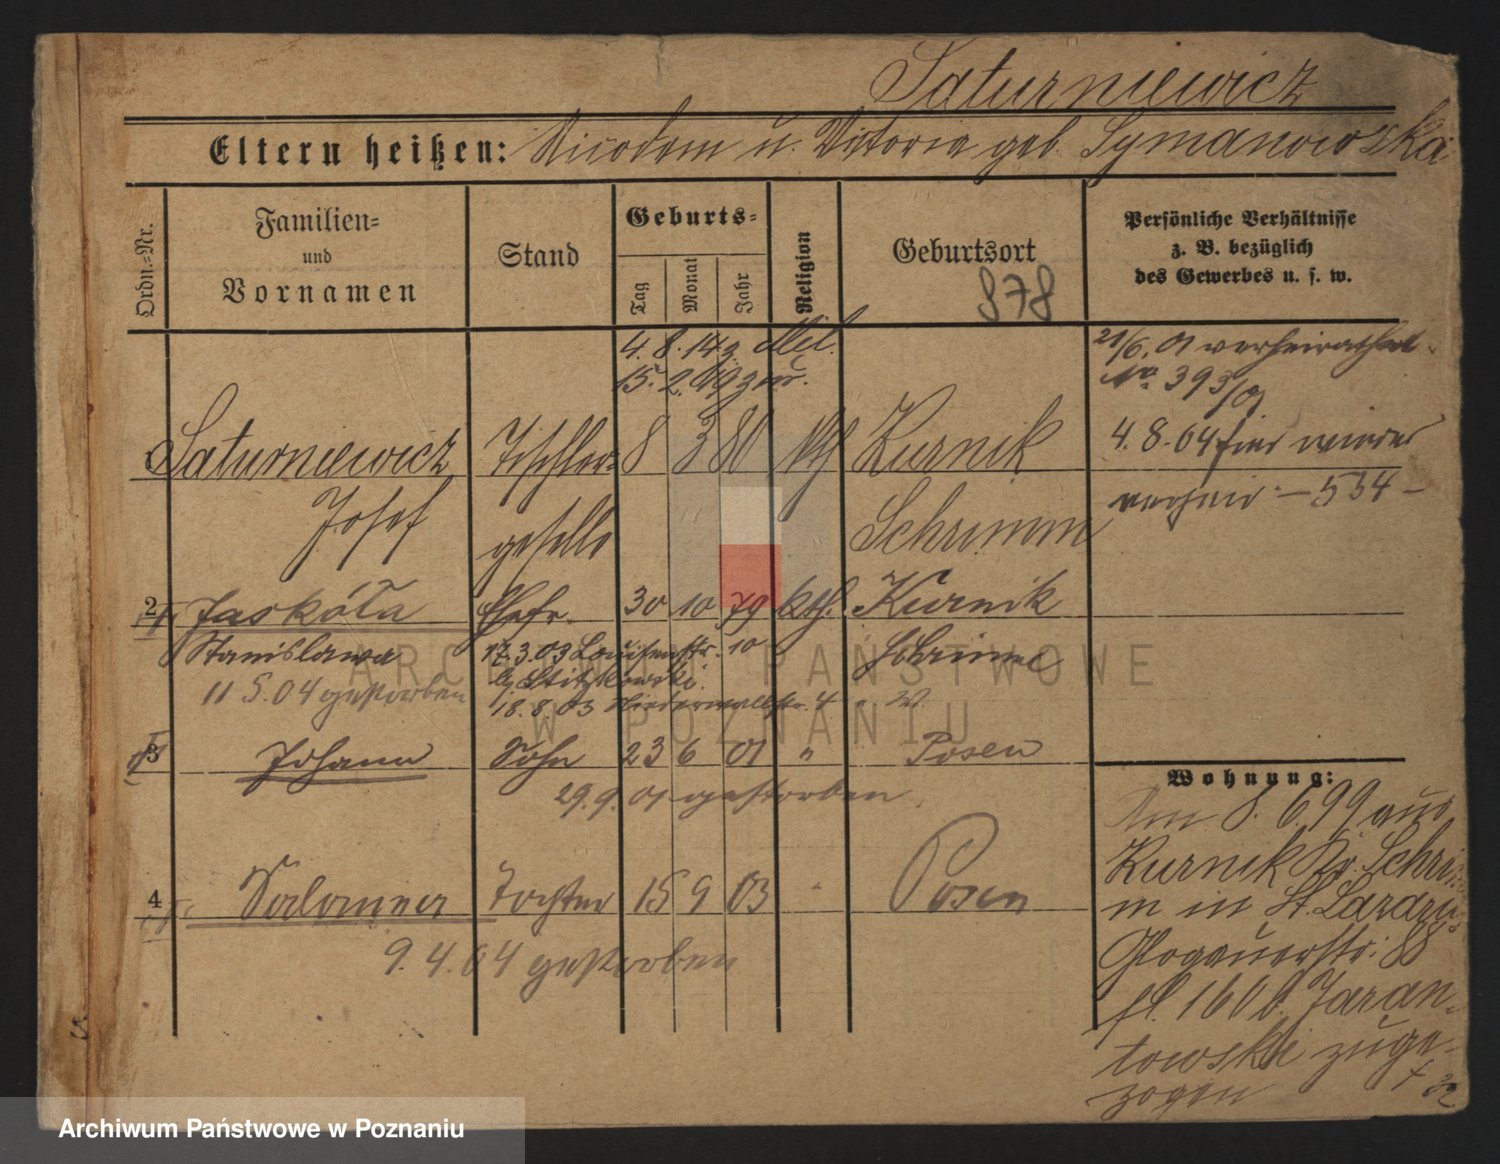 Saturniewicz
Eltern heißen: Nicodem u. Victoria geb. Symanowska
Ordn.-Nr.
Familien-
und
Vornamen
Stand
Geburts-
Tag
Monat
Jahr
Religion
Geburtsort
878
Persönliche Verhältnisse
z. B. bezüglich
des Gewerbes u. s. w.
4. 8. 14 z. Mil.
15. 2. 19 zur.
21/6. 01 verheirathet
No 393/01
Saturniewicz Tischler- 8 3 80 kth Kurnik
4. 8. 04 hier wieder
verheir. – 534 –
Josef geselle Schrimm
2 Jaskóła Ehefr. 30 10 79 kth. Kurnik
Stanislawa 17.3.03 Louisenstr. 10 Schrimm
11 5. 04 gestorben
18. 8. 03 Niederwallstr. 4 W.
3 Johann Sohn 23 6 01 " Posen
29. 9. 01 gestorben
4 Salomea Tochter 15 9 03 " Posen
9. 4. 04 gestorben
Wohnung:
Am 8. 6. 99 aus
Kurnik Kr. Schri-
m in St. Lazarus
Glogauerstr. 88
fl. 160 b. Jaran-
towski zuge-
zogen
ARCHIWUM PAŃSTWOWE
W POZNANIU
Archiwum Państwowe w Poznaniu